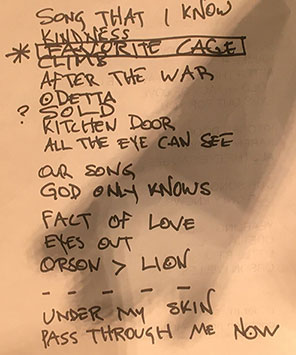 SONG THAT I KNOW
KINDNESS
* FAVORITE CAGE
CLIMB
AFTER THE WAR
ODETTA
? SOLD
KITCHEN DOOR
ALL THE EYE CAN SEE
OUR SONG
GOD ONLY KNOWS
FACT OF LOVE
EYES OUT
ORSON > LION
- - - - - -
UNDER MY SKIN
PASS THROUGH ME NOW